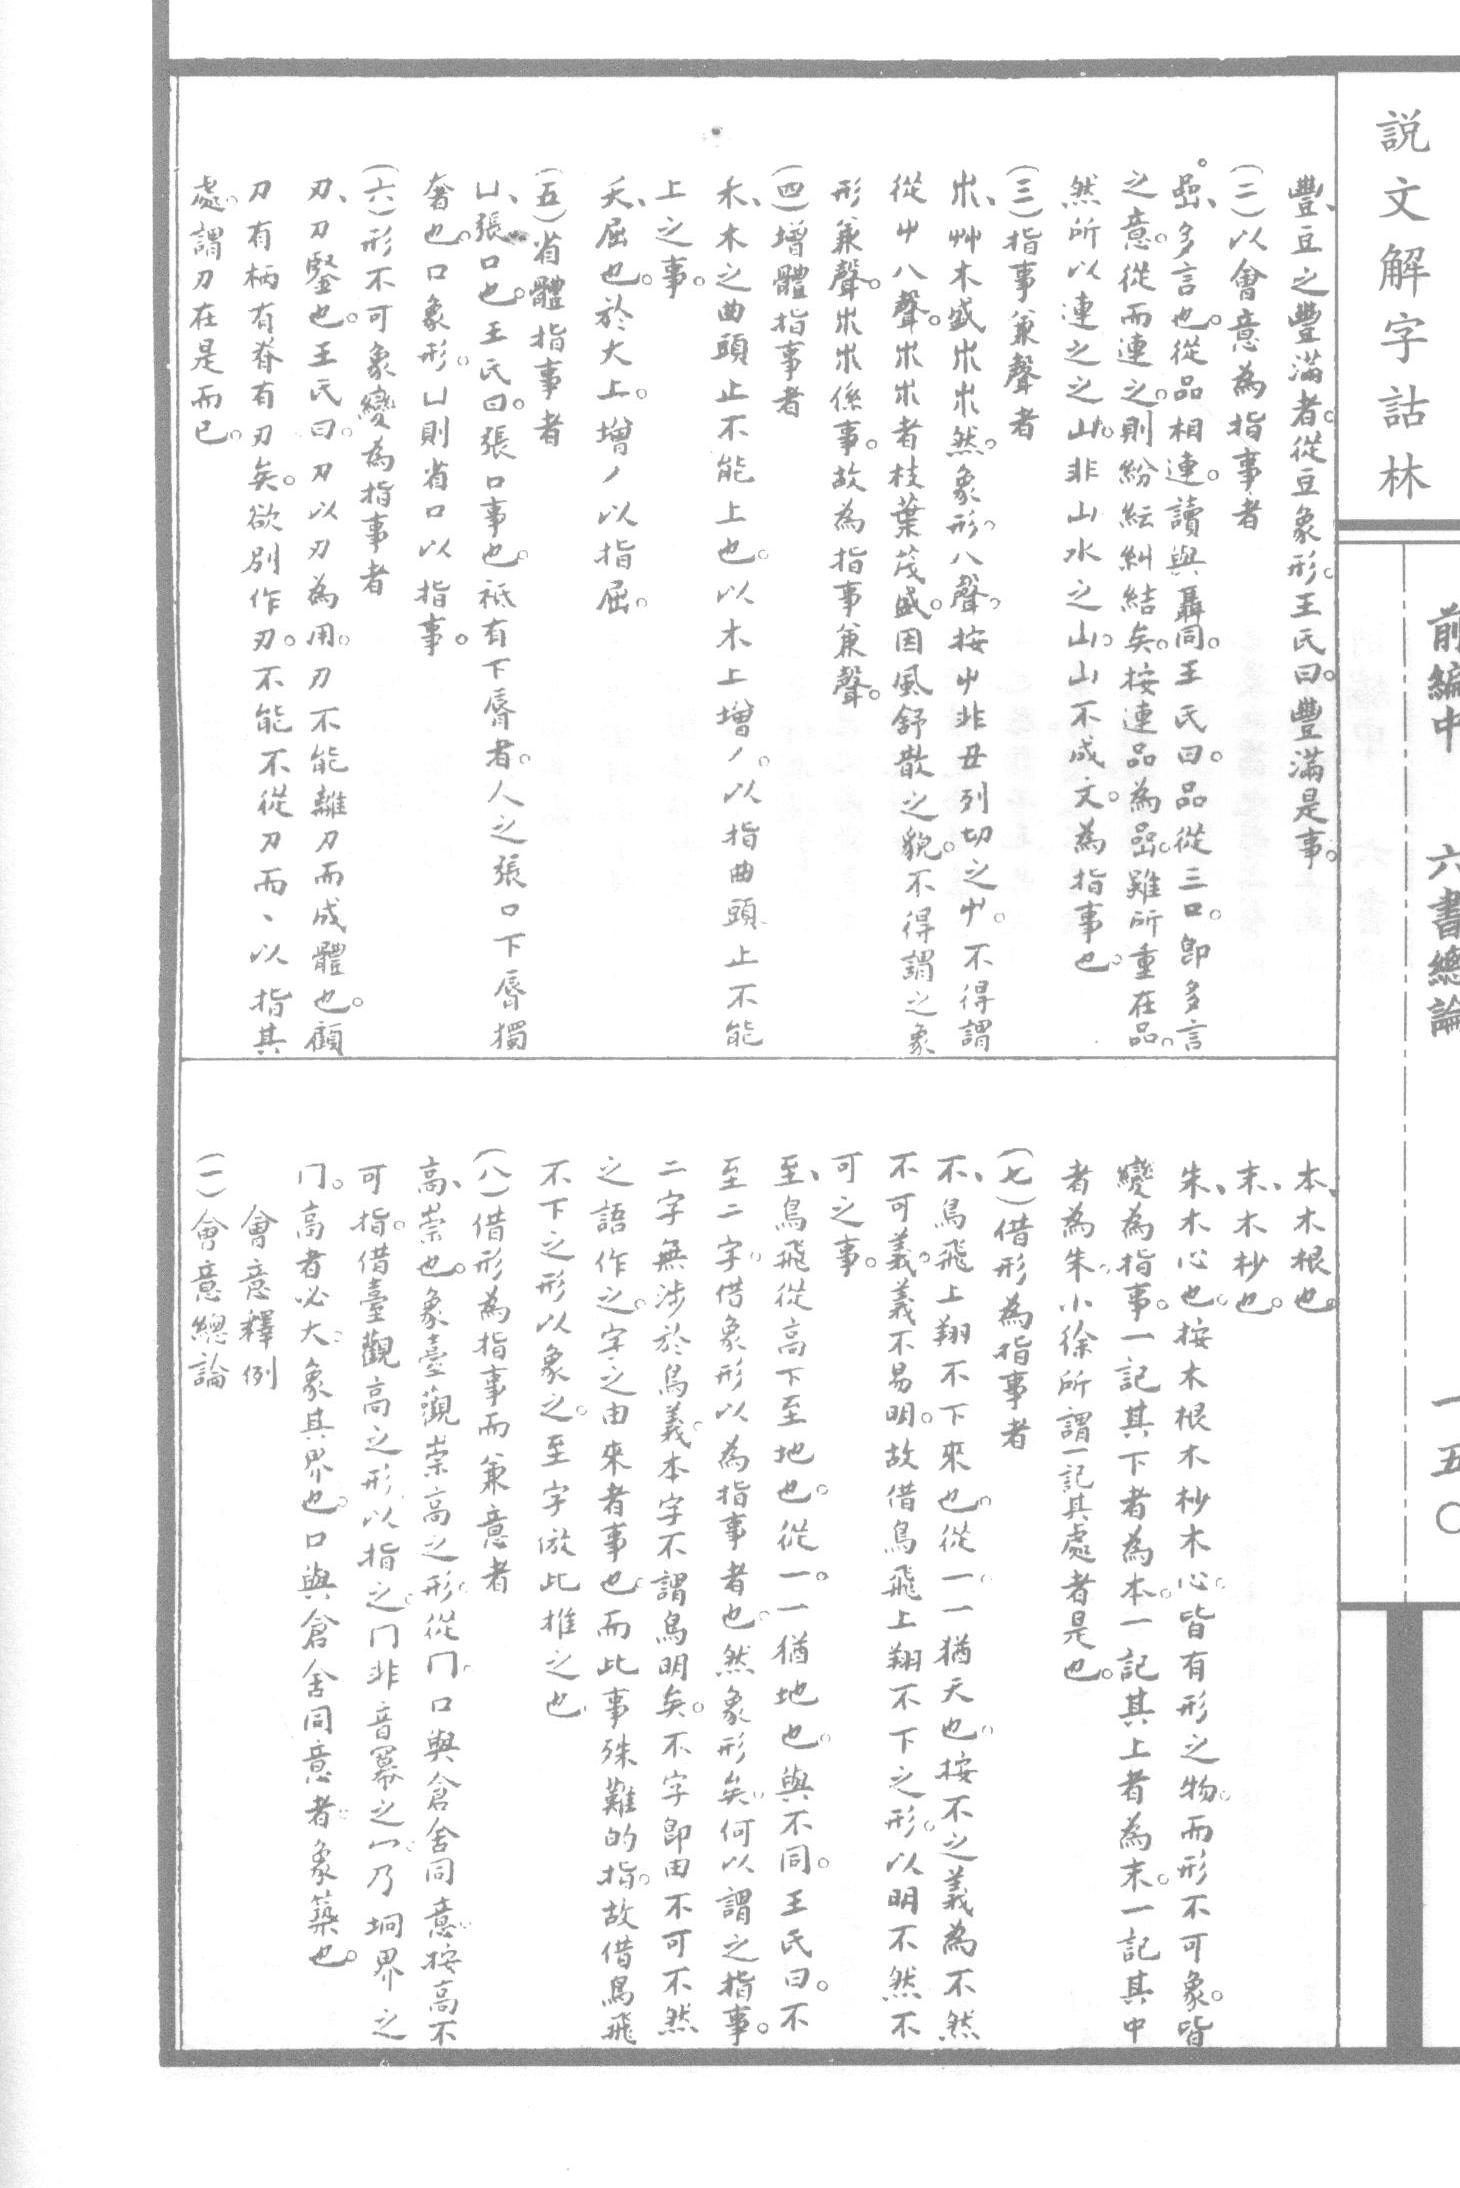 説文解字詁林
前編中 六書總論 一五〇
豐、豆之豐滿者。從豆象形。王氏曰。豐滿是事。
(二)以會意為指事者
嵒、多言也。從品相連。讀與聶同。王氏曰。品從三口。即多言
之意。從而連之。則紛紜糾結矣。按連品為嵒。雖所重在品。
然所以連之之山。非山水之山。山不成文。為指事也。
(三)指事兼聲者
𣎵、艸木盛𣎵𣎵然。象形。八聲。按屮非丑列切之屮。不得謂
從屮八聲。𣎵𣎵者枝葉茂盛。因風舒散之貌。不得謂之象
形兼聲。𣎵𣎵係事。故為指事兼聲。
(四)增體指事者
禾、木之曲頭止不能上也。以木上增丿。以指曲頭止不能
上之事。
夭、屈也。於大上。增丿以指屈。
(五)省體指事者
凵、張口也。王氏曰。張口事也。祗有下脣者。人之張口下脣獨
奢也。口象形。凵則省口以指事。
(六)形不可象變為指事者
刃、刀鋻也。王氏曰。刀以刃為用。刃不能離刀而成體也。顧
刀有柄有脊有刃矣。欲別作刃。不能不從刀而丶以指其
處。謂刃在是而已。
本、木根也。
末、木杪也。
朱、木心也。按木根木杪木心。皆有形之物。而形不可象。皆
變為指事。一記其下者為本。一記其上者為末。一記其中
者為朱。小徐所謂一記其處者是也。
(七)借形為指事者
不、鳥飛上翔不下來也。從一。一猶天也。按不之義為不然
不可。義義不易明。故借鳥飛上翔不下之形。以明不然不
可之事。
至、鳥飛從高下至地也。從一。一猶地也。與不同。王氏曰。不
至二字。借象形以為指事者也。然象形矣。何以謂之指事。
二字無涉於鳥義。本字不謂鳥明矣。不字即由不可不然
之語作之。字之由來者事也。而此事殊難的指。故借鳥飛
不下之形以象之。至字倣此推之也
(八)借形為指事而兼意者
高、崇也。象臺觀崇高之形。從冂。口與倉舍同意。按高不
可指。借臺觀高之形以指之。冂非音冪之冖。乃坰界之
冂。高者必大。象其界也。口與倉舍同意者。象築也。
會意釋例
(一)會意總論